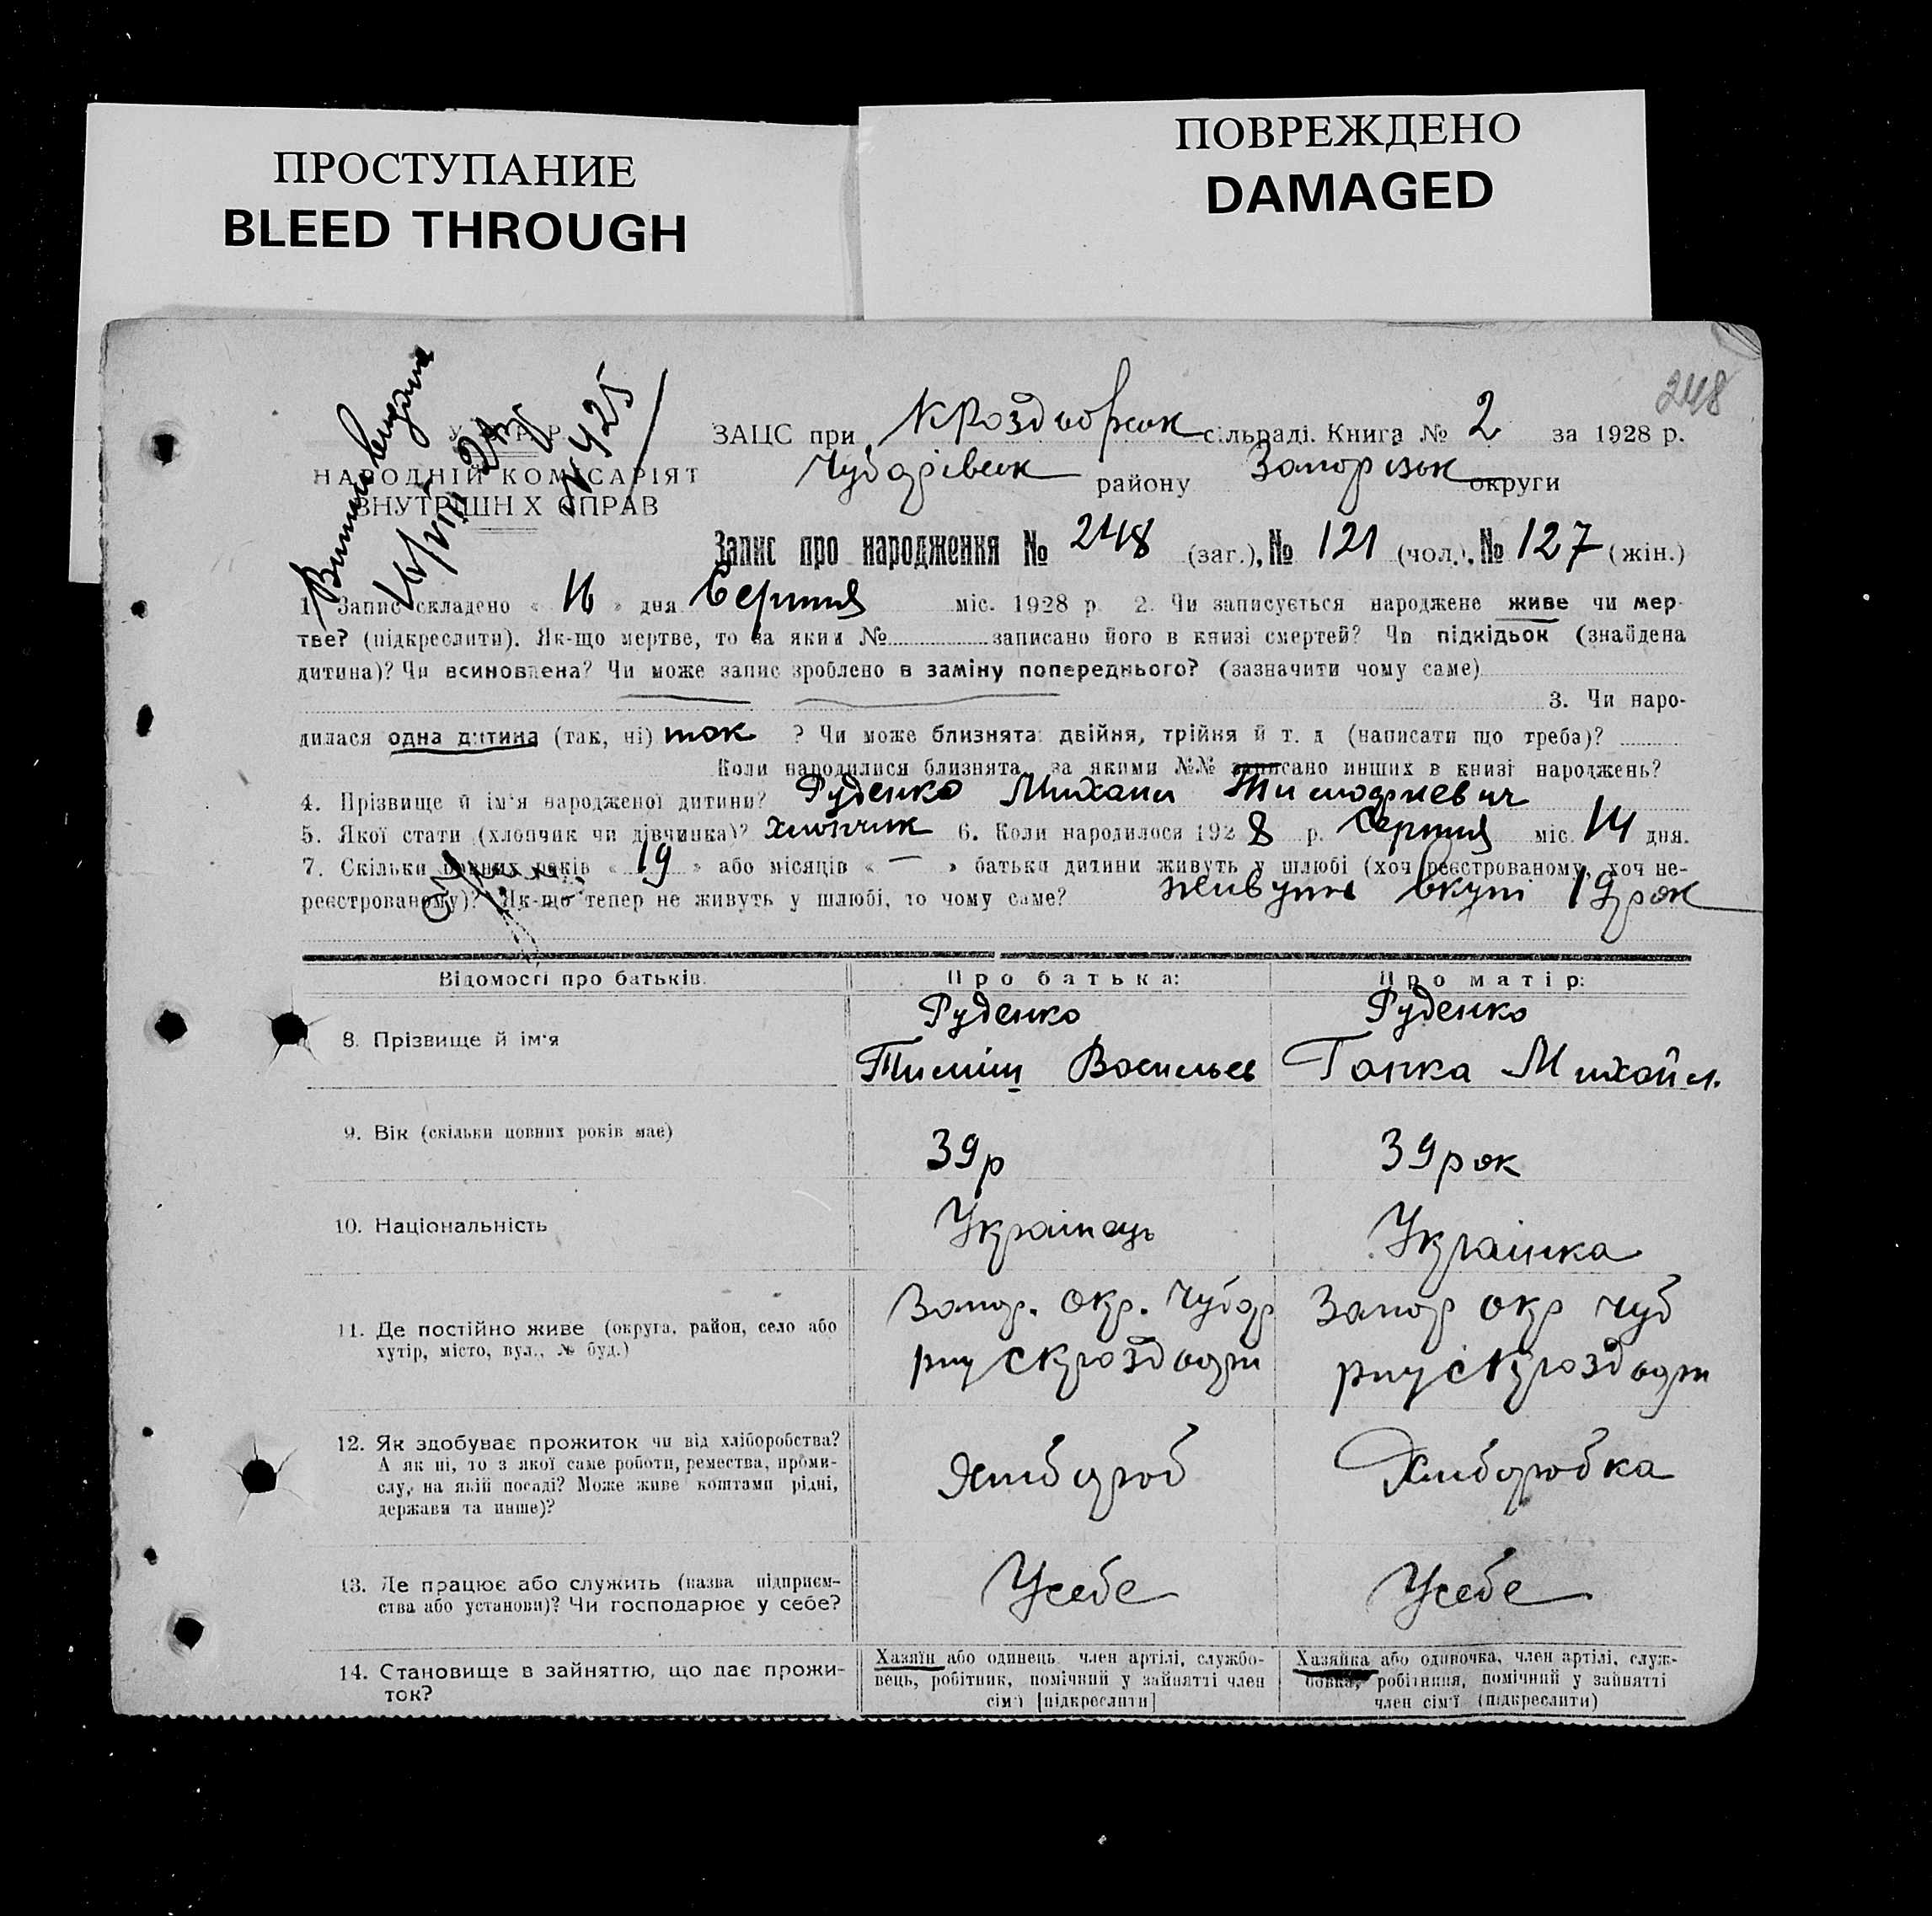 ПРОСТУПАНИЕ
BLEED THROUGH
ПОВРЕЖДЕНО
DAMAGED
248
Виписа видана
N 425
НАРОДНІЙ КОМІСАРІЯТ
ВНУТРІШН Х СПРАВ
ЗАЦС при К Роздорськ сільраді. Книга № 2 за 1928 р.
Чубарівськ району Запорізьк округи
Запис про народження № 248 (заг.), № 121 (чол.), № 127 (жін.)
1. Запис складено « 16 » дня Серпня міс. 1928 р. 2. Чи записується народжене живе чи мер-
тве? (підкреслити). Як-що мертве, то за яким № записано його в книзі смертей? Чи підкідьок (знайдена
дитина)? Чи всиновлена? Чи може запис зроблено в заміну попереднього? (зазначити чому саме)
3. Чи наро-
дилася одна дитина (так, ні) так ? Чи може близнята: двійня, трійня й т. д (написати що треба)?
Коли народилися близнята, за якими №№ записано инших в книзі народжень?
4. Прізвище й ім'я народженої дитини? Руденко Михаил Тимофиевич
5. Якої стати (хлопчик чи дівчинка)? хлопчик 6. Коли народилося 1928 р. Серпня міс. 14 дня.
7. Скільки повних років « 19 » або місяців « — » батьки дитини живуть у шлюбі (хоч реєстрованому, хоч не-
реєстрованому)? Як-що тепер не живуть у шлюбі, то чому саме? живуть вкупі 19 рок
Відомості про батьків. Про батька: Про матір:
8. Прізвище й ім'я Руденко Руденко
Тиміш Васильев Ганка Михайл.
9. Вік (скільки повних років має) 39 р 39 рок
10. Національність Українець Українка
11. Де постійно живе (округа, район, село або
хутір, місто, вул., № буд.)
Запор. окр. Чубар Запор окр чуб
12. Як здобуває прожиток чи від хліборобства? Хлибороб Хлиборобка
А як ні, то з якої саме роботи, ремества, проми-
слу, на якій посаді? Може живе коштами рідні,
держави та инше)?
13. Де працює або служить (назва підприєм-
ства або установи)? Чи господарює у себе? Усебе Усебе
14. Становище в зайняттю, що дає прожи-
ток?
Хазяїн або одинець, член артілі, службо-
вець, робітник, помічний у зайнятті член
сім'ї [підкреслити]
Хазяйка або одиночка, член артілі, служ-
бовка, робітниця, помічний у зайнятті
член сім'ї (підкреслити)